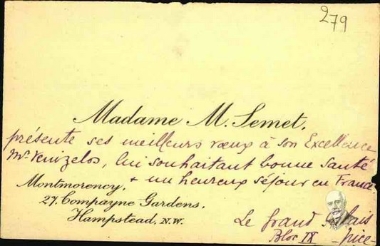 279
Madame M. Semet,
présente ses meilleurs vœux à son Excellence
Mr Venizelos, lui souhaitant bonne santé
+ un heureux séjour en France
Montmorency,
27, Compayne Gardens,
Hampstead, N.W.
Le Grand Palais
Bloc IX - Nice